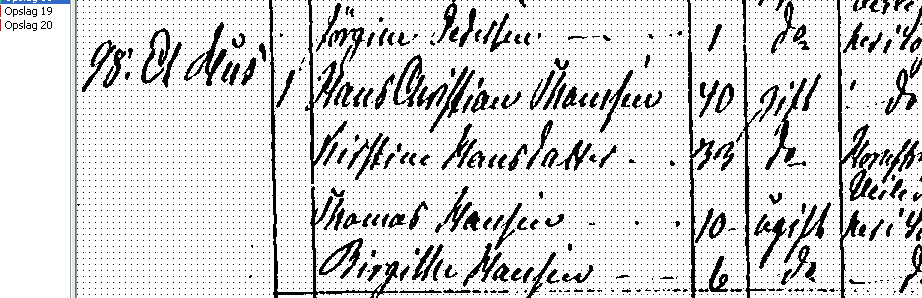 Opslag 19
Opslag 20
Jörgine Pedersen 1 do
98. Et Huus
1 Hans Christian Thomsen 40 gift do
Kirstine Hansdatter 33 do
Thomas Hansen 10 ugift
Birgitte Hansen 6 do